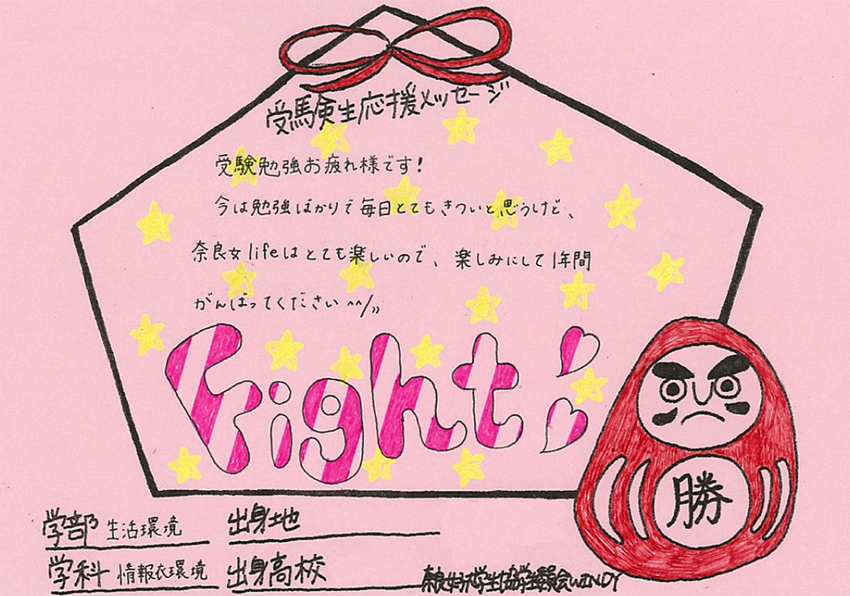 受験生応援メッセージ
受験勉強お疲れ様です!
今は勉強ばかりで毎日とてもきついと思うけど、
奈良女lifeはとても楽しいので、楽しみにして1年間
がんばってください^^/〃
Fight!!
勝
学部 生活環境 出身地
学科 情報衣環境 出身高校
奈良女子大学生協学生委員会WINDY